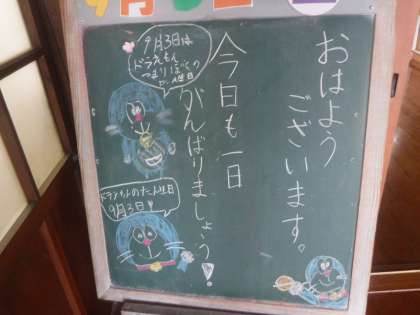 おはよう
ございます。
今日も一日
がんばりましょう!
9月3日は
ドラえもん
つまりぼくの
たん生日
ドラえもんのたん生日
9月3日!